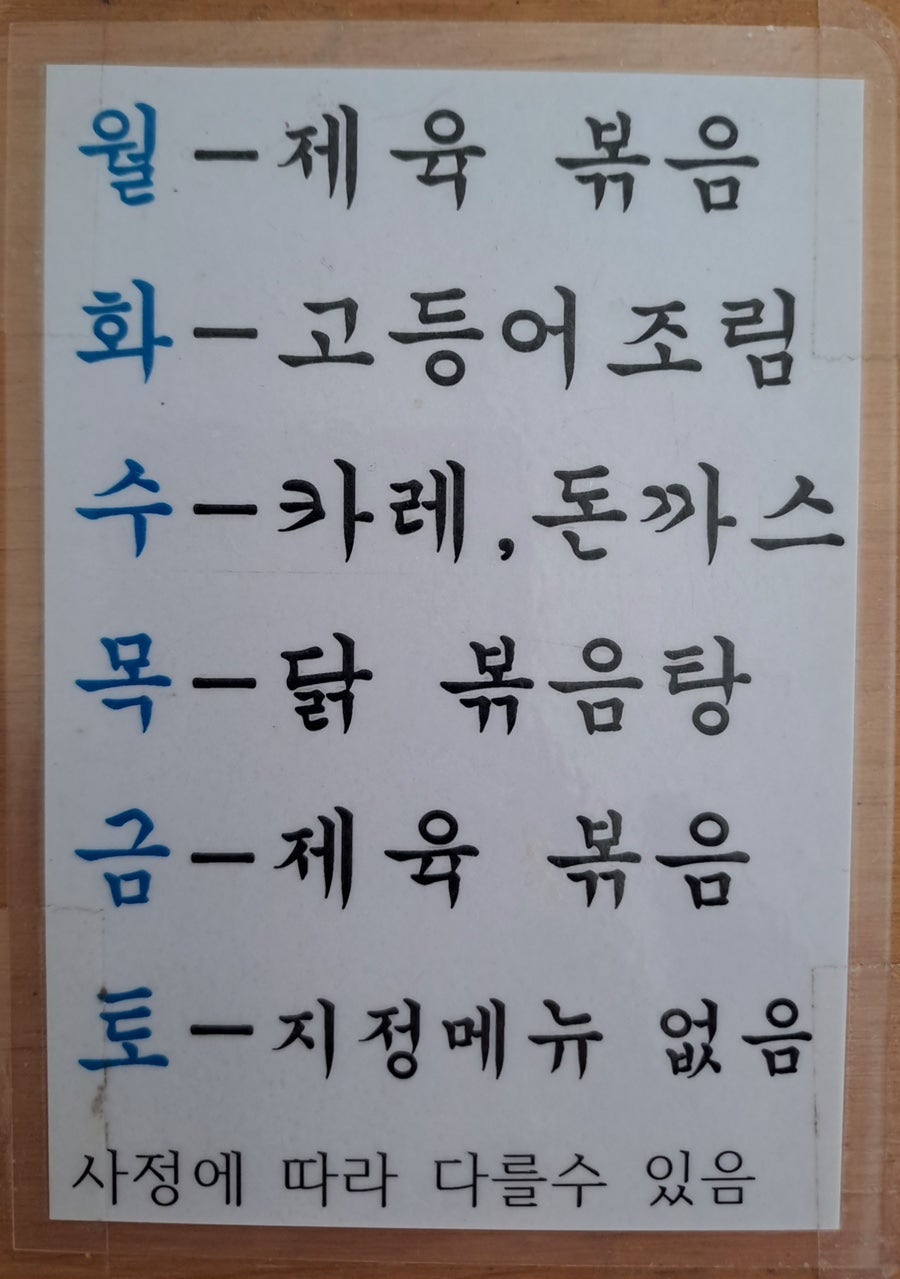 월 - 제육 볶음
화 - 고등어조림
수 - 카레, 돈까스
목 - 닭 볶음탕
금 - 제육 볶음
토 - 지정메뉴 없음
사정에 따라 다를수 있음